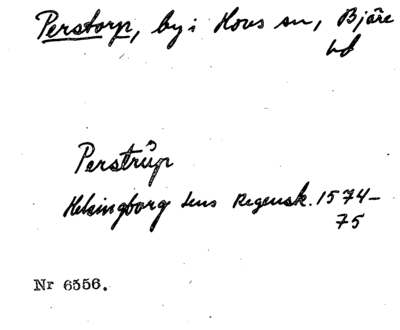 Perstorp, by i Hovs sn, Bjäre
hd
Perstrŭp
Helsingborg Lens Regensk. 1574-
75
Nr 6556.